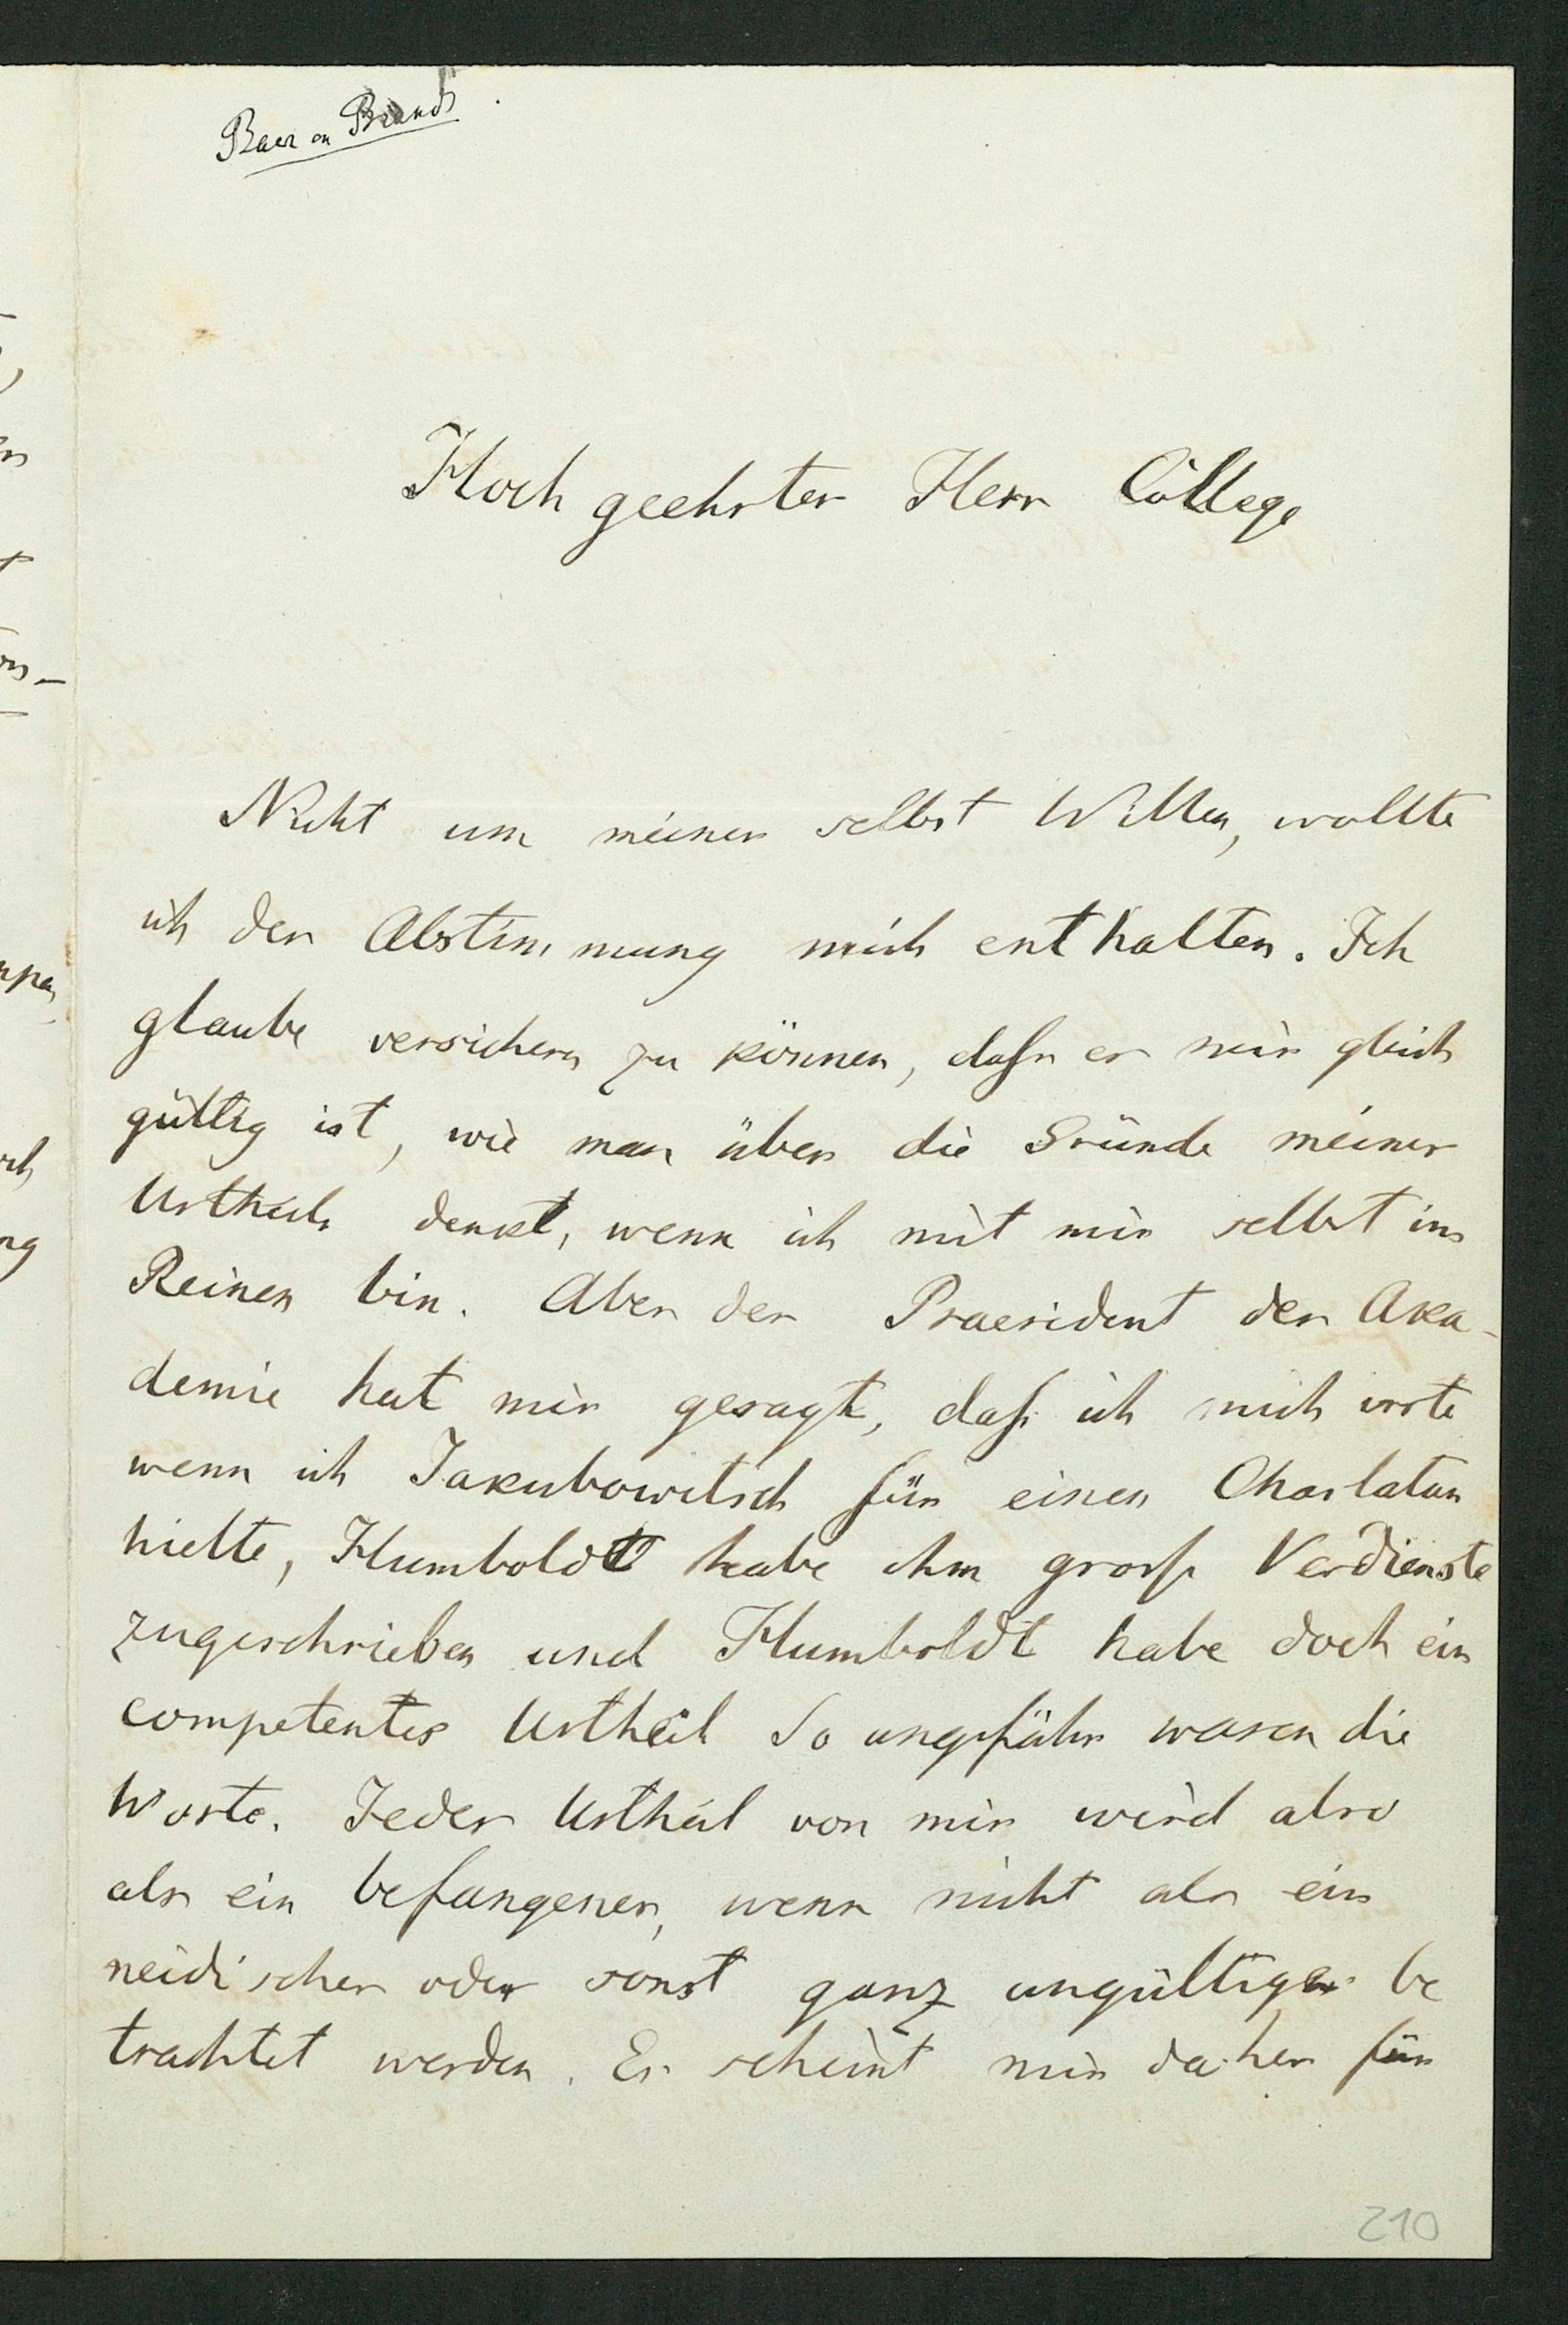 Baer an Brandt
Hochgeehrter Herr College
Nicht um meiner selbst Willen, wollte
ich der Abstimmung mich enthalten. Ich
glaube versichern zu können, dass es mir gleich
gültig ist, wie man über die Gründe meines
Urtheils denkt, wenn ich mit mir selbst ins
Reinen bin. Aber der Praesident der Aka-
demie hat mir gesagt, dass ich mich irrte
wenn ich Jakubowitsch für einen Charlatan
hielte, Humboldt habe ihm grosse Verdienste
zugeschrieben und Humboldt habe doch ein
competentes Urtheil So ungefähr waren die
Worte. Jedes Urtheil von mir wird also
als ein befangenes, wenn nicht als ein
neidisches oder sonst ganz ungültiges be
trachtet werden. Es scheint mir daher für
210